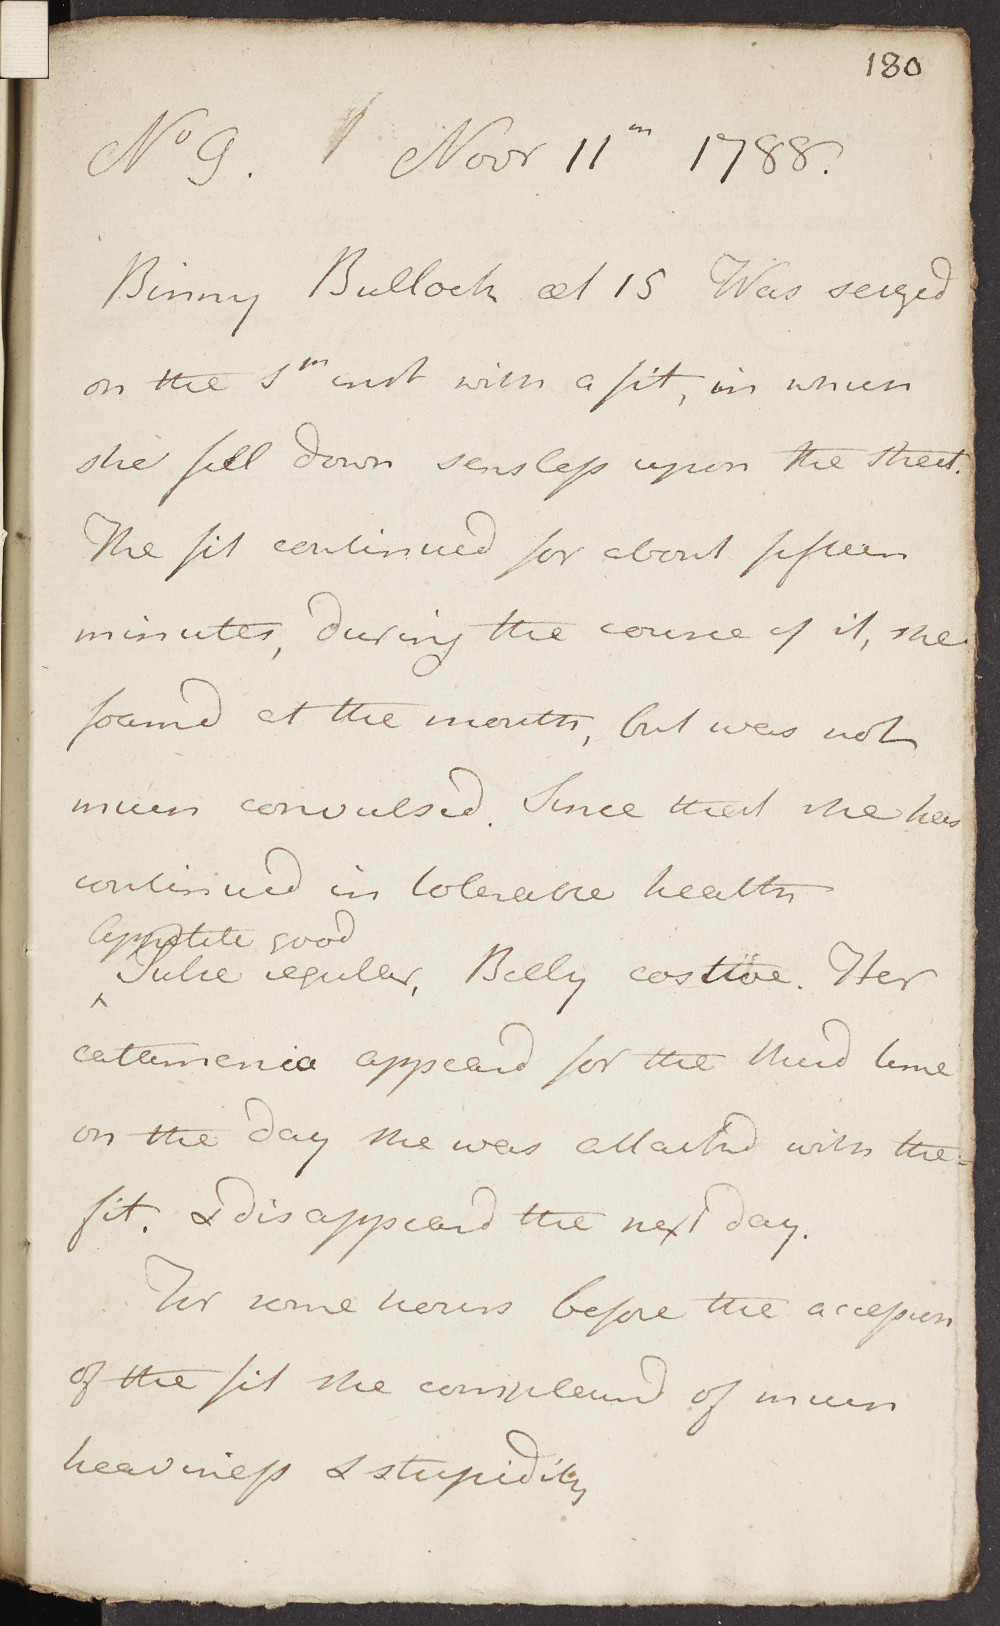 180
No 9. Novr 11th 1788.
Binny Bullock æt 15 Was seized
on the 5th inst with a fit, in which
she fell down sensless upon the street.
The fit continued for about fifteen
minutes, during the course of it, she
foamd at the mouth, but was not
much convulsed. Since that she has
continued in tolerable health
Appetite good
^ Pulse regular, Belly costive. Her
catamenia appeard for the third time
on the day she was attackd with the
fit. & disappeard the next day.
For some hours before the accession
of the fit she complaind of much
heaviness & stupidity